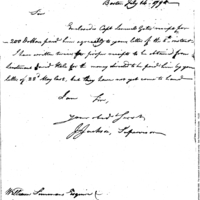 Boston July 14. 1794
Sir
Enclosed is Capt Lemuel Gates receipt for
200 Dollars paid him agreeably to your letter of the 5th instant
I have written twice for proper receipts to be obtained from
Lieutenant Hale for the money directed to be paid him by your
letter of 28th May last, but they have not yet come to hand
I am Sir,
your obedt Servt,
J Jackson, Supervisor
William Simmons Esquire